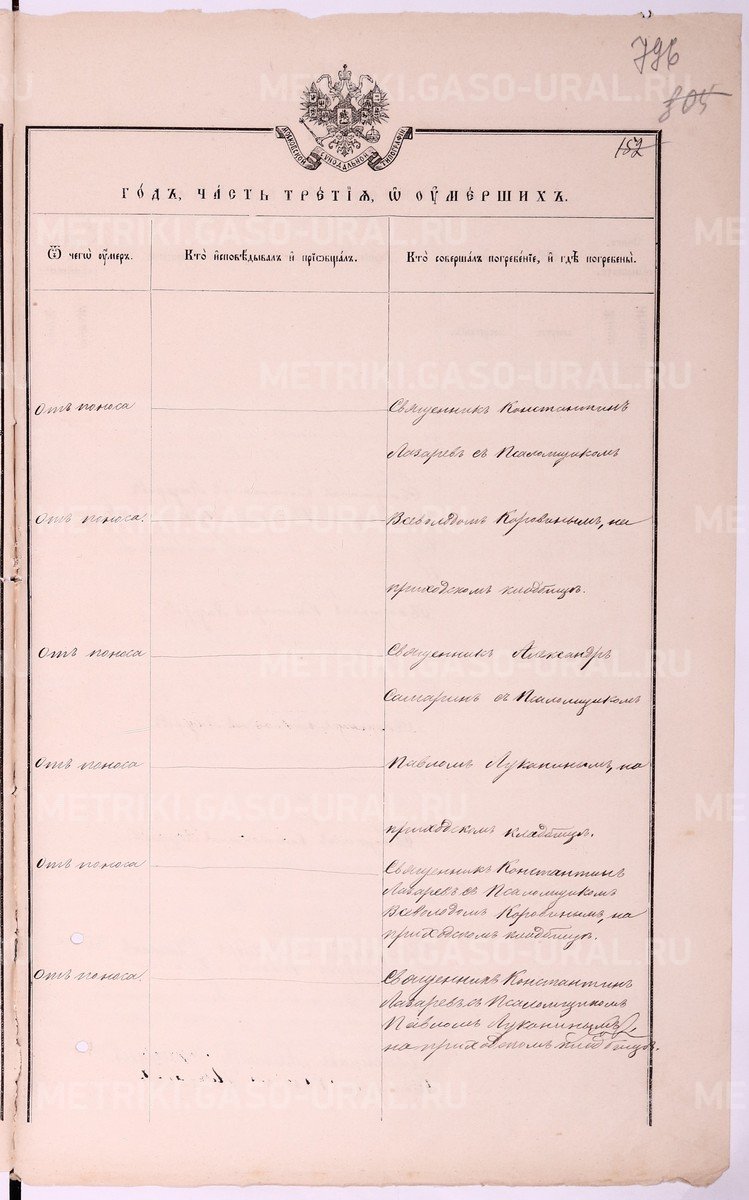 796
805
152
МОСКОВСКОЙ СѴНОДАЛЬНОЙ ТИПОГРАФІИ
ГО́ДЪ, ЧА́СТЬ ТРЕ́ТІѦ, Ѡ҆ ОУ҆МЕ́РШИХЪ.
Ѿ чегѡ̀ оу҆́меръ.
Кто̀ и҆сповѣ́дывалъ и҆ прїѡбща́лъ.
Кто̀ соверша́лъ погребе́нїе, и҆ гдѣ̀ погребены̀.
Отъ поноса
Священникъ Константинъ
Лазаревъ съ Псаломщикомъ
Отъ поноса.
Всеволодомъ Коровинымъ, на
приходскомъ кладбищѣ.
Отъ поноса
Священникъ Александръ
Самаринъ съ Псаломщикомъ
Отъ поноса
Павломъ Луканинымъ, на
приходскомъ кладбищѣ.
Отъ поноса
Священникъ Константинъ
Лазаревъ съ Псаломщикомъ
Всеволодомъ Коровинымъ, на
приходскомъ кладбищѣ.
Отъ поноса.
Священникъ Константинъ
Лазаревъ съ Псаломщикомъ
Павломъ Луканинымъ,
на приходскомъ кладбищѣ.
METRIKI.GASO-URAL.RU